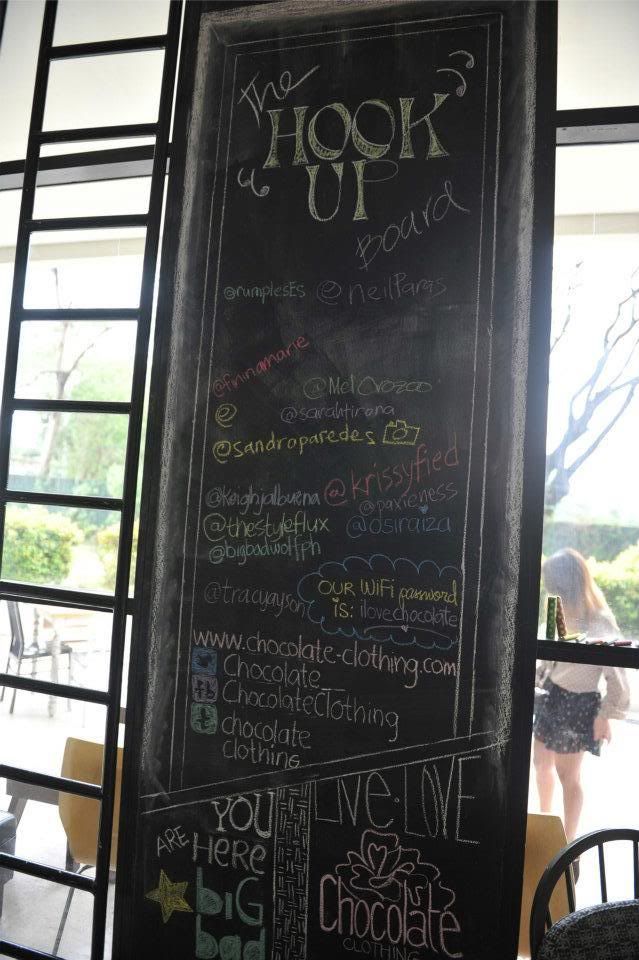 The
HOOK
UP
Board
@rumplesEs @neilParas
@fninamarie
@MelOrozco
@
@sarahtirona
@sandroparedes
@krissyfied
@keighjalbuena
@paxieness
@thestyleflux @osiraiza
@bigbadwolfph
@tracyayson
OUR WiFi password
is: ilovechocolate
www.chocolate-clothing.com
Chocolate_
fb ChocolateClothing
t chocolate
clothing
YOU
ARE HERE
biG
bad
LIVE·LOVE
Chocolate
CLOTHING